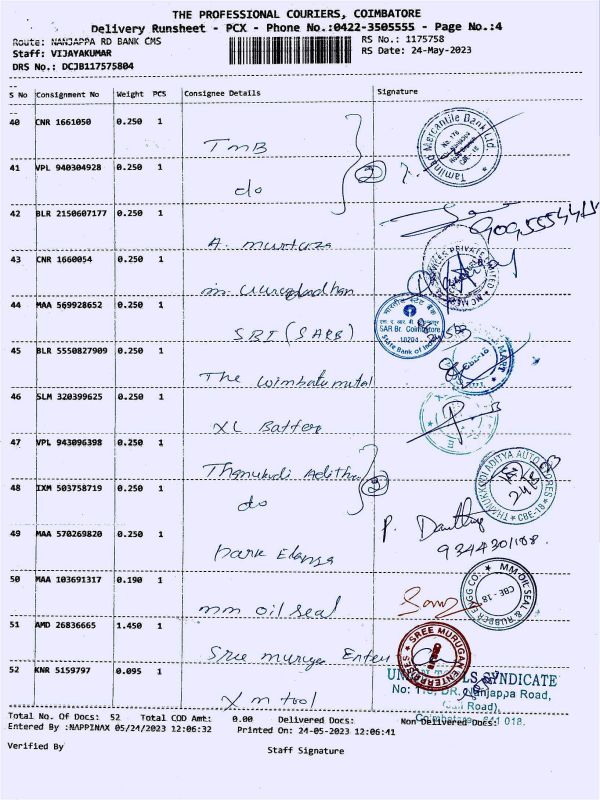 THE PROFESSIONAL COURIERS, COIMBATORE
Delivery Runsheet - PCX - Phone No.:0422-3505555 - Page No.:4
Route: NANJAPPA RD BANK CMS
RS No.: 1175758
Staff: VIJAYAKUMAR
RS Date: 24-May-2023
DRS No.: DCJB117575804
S No Consignment No Weight PCS Consignee Details Signature
40 CNR 1661050 0.250 1
TMB
Tamilnad Mercantile Bank Ltd.
41 VPL 940304928 0.250 1
do
2
42 BLR 2150607177 0.250 1
A. murtuza
43 CNR 1660054 0.250 1
44 MAA 569928652 0.250 1
SBI (SARB)
SAR Br. Coimbatore
18204
State Bank of India
45 BLR 5550827909 0.250 1
The Coimbatu metal
46 SLM 320399625 0.250 1
XL Batter
47 VPL 943096398 0.250 1
2
THANUKKODI ADITYA AUTO STORES
CBE-18
48 IXM 503758719 0.250 1
do
49 MAA 570269820 0.250 1
Park Elanza
50 MAA 103691317 0.190 1
mm oil seal
MM OIL SEAL & RUBBER ENGG CO.
CBE - 18
51 AMD 26836665 1.450 1
Sree muruga Enter
SREE MURUGAN ENTERPRISES
52 KNR 5159797 0.095 1
X m tool
SYNDICATE
DR. Nanjappa Road,
Road),
Coimbatore 641 018.
Total No. Of Docs: 52 Total COD Amt: 0.00 Delivered Docs: Non Delivered Docs:
Entered By :NAPPINAX 05/24/2023 12:06:32 Printed On: 24-05-2023 12:06:41
Verified By
Staff Signature